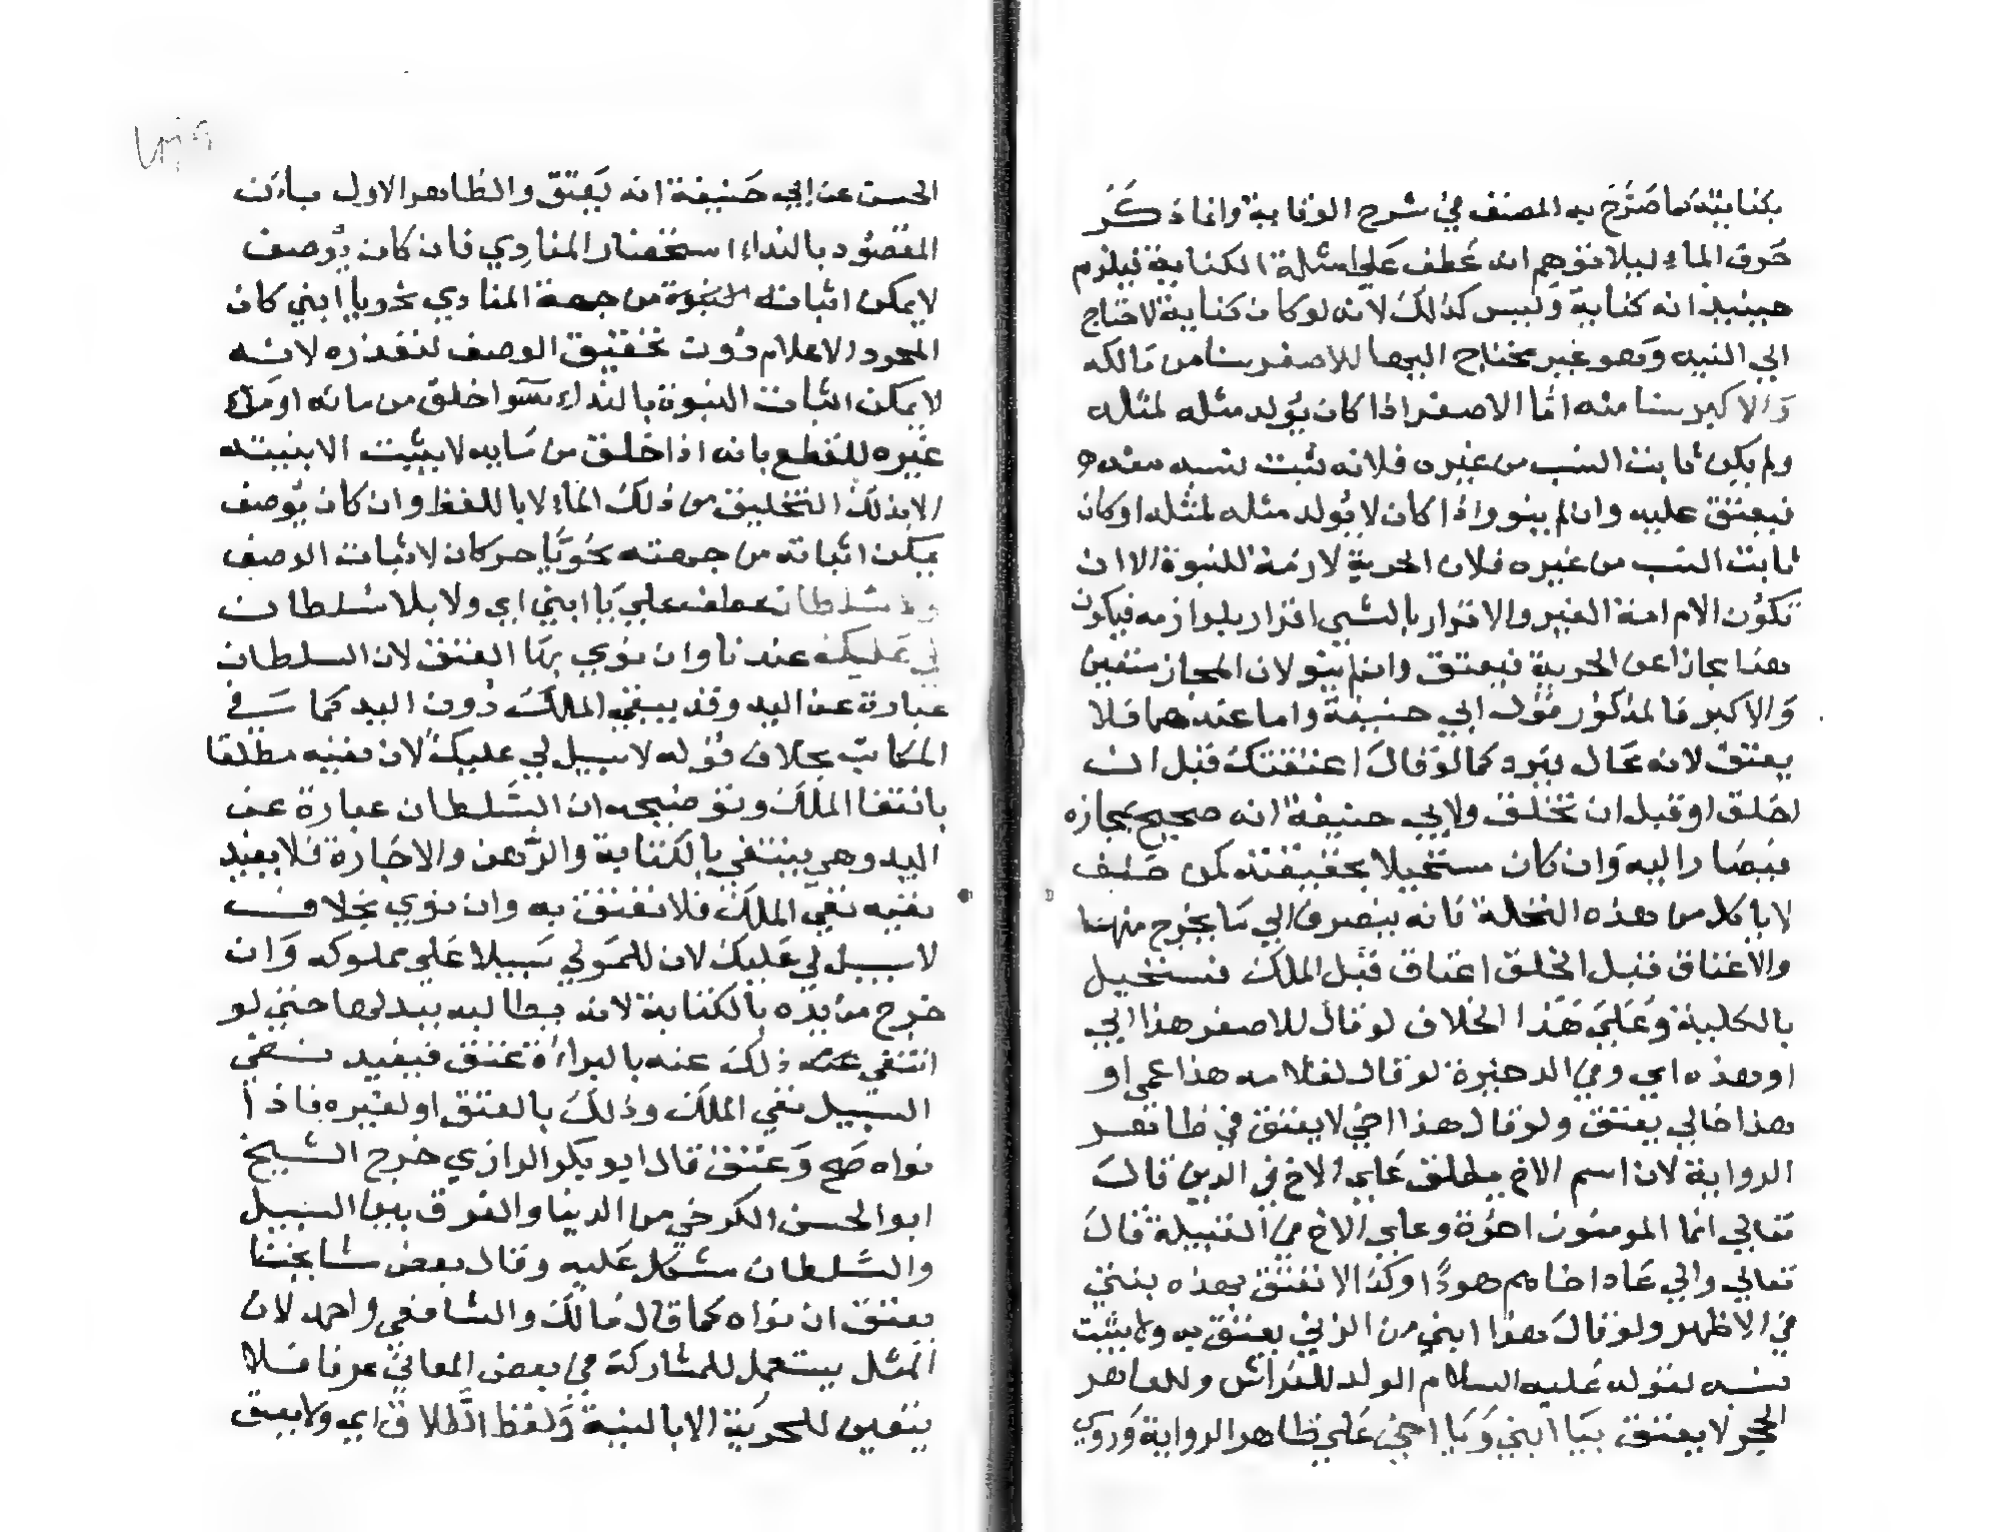 بكنايته كما صرح به المصنف في شرح الوقاية وانما ذكر
حرف الباء ليلا توهم انه عطف علي امثلة الكناية فيلزم
حينيذ انه كناية وليس كذلك لانه لو كان كناية لاحتاج
الي النيه وهو غير محتاج اليها للاصغر سنا من مالكه
والاكبر سنا منه اما الاصغر اذا كان يولد مثله لمثله
ولم يكن ثابت النسب من غيره فلانه ثبت نسبه منه
فيعتق عليه وان لم ينو واذا كان لا يولد مثله لمثله او كان
ثابت النسب من غيره فلان الحرية لازمة للبنوة الا ان
تكون الام امة الغير والاقرار بالشي اقرار بلوازمه فيكون
هذا مجازا عن الحرية فيعتق وان لم ينو لان المجاز متعين
والاكبر فالمذكور قول ابي حنيفة واما عندهما فلا
يعتق لانه محال فيرد كما لو قال اعتقتك قبل ان
اخلق او قبل ان تخلق ولابي حنيفة انه صحيح بمجازه
فيصار اليه وان كان مستحيلا بحقيقته كمن حلف
لا ياكل من هذه النخلة فانه ينصرف الي ما يخرج منها
والاعتاق قبل الخلق اعتاق قبل الملك فستحيل
بالكلية وعلي هذا الخلاف لو قال للاصغر هذا ابي
او هذه امي وفي الدخيرة لو قال لغلامه هذا عمي او
هذا خالي يعتق ولو قال هذا اخي لا يعتق في ظاهر
الرواية لان اسم الاخ يطلق علي الاخ في الدين قال
تعالي انما المومنون اخوة وعلي الاخ في القبيلة قال
تعالي والي عاد اخاهم هودا وكذا لا تعتق بهذه بنتي
في الاظهر ولو قال هذا ابني من الزني يعتق به ولا يثبت
نسبه لقوله عليه السلام الولد للفراش وللعاهر
الحجر لا يعتق بيا ابني ويا اخي علي ظاهر الرواية وروي
الحسن عن ابي حنيفة انه يعتق والظاهر الاول بان
المقصود بالنداء استحضار المنادي فان كان يوصف
لا يمكن اثباته من جهة المنادي نحو يا ابني كان
المجرد الاعلام دون تحقيق الوصف لتعذره لانه
لا يمكن اثبات البنوة بالنداء سوا خلق من مائه او ماء
غيره للقطع بانه اذا خلق من مايه لا يثبت الابنيته
الا بذلك التخليق من ذلك الماء لا باللفظ وان كان يوصف
يمكن اثباته من جهته نحو يا حر كان لاثبات الوصف
ولا سلطان عطف علي يا ابني اي ولا بلا سلطان
لي عليك عندنا وان نوي بها العتق لان السلطان
عبارة عن اليد وقد يبقي الملك دون اليد كما في
المكاتب بخلاف قوله لا سبيل لي عليك لان نفيه مطلقا
بانتفا الملك وتوضيحه ان السلطان عبارة عن
اليد وهي ينتفي بالكتابة والرهن والاجارة فلا يفيد
نفيه نفي الملك فلا تعتق به وان نوي بخلاف
لا سبيل لي عليك لان للمولي سبيلا علي مملوكه وان
خرج من يده بالكتابة لانه يطالبه ببدلها حتي لو
انتفي ذلك عنه بالبراءة عتق فيفيد نفي
السبيل نفي الملك وذلك بالعتق او لغيره فاذا
نواه صح وعتق قال ابو بكر الرازي خرج الشيخ
ابو الحسن الكرخي من الدنيا والفرق بين السبيل
والسلطان مشكل عليه وقال بعض مشايخنا
يعتق ان نواه كما قال مالك والشافعي واحمد لان
المثل يستعمل للمشاركة في بعض المعاني عرفا فلا
يتعين للحرية الا بالنية ولفظ الطلاق اي ولا يعتق